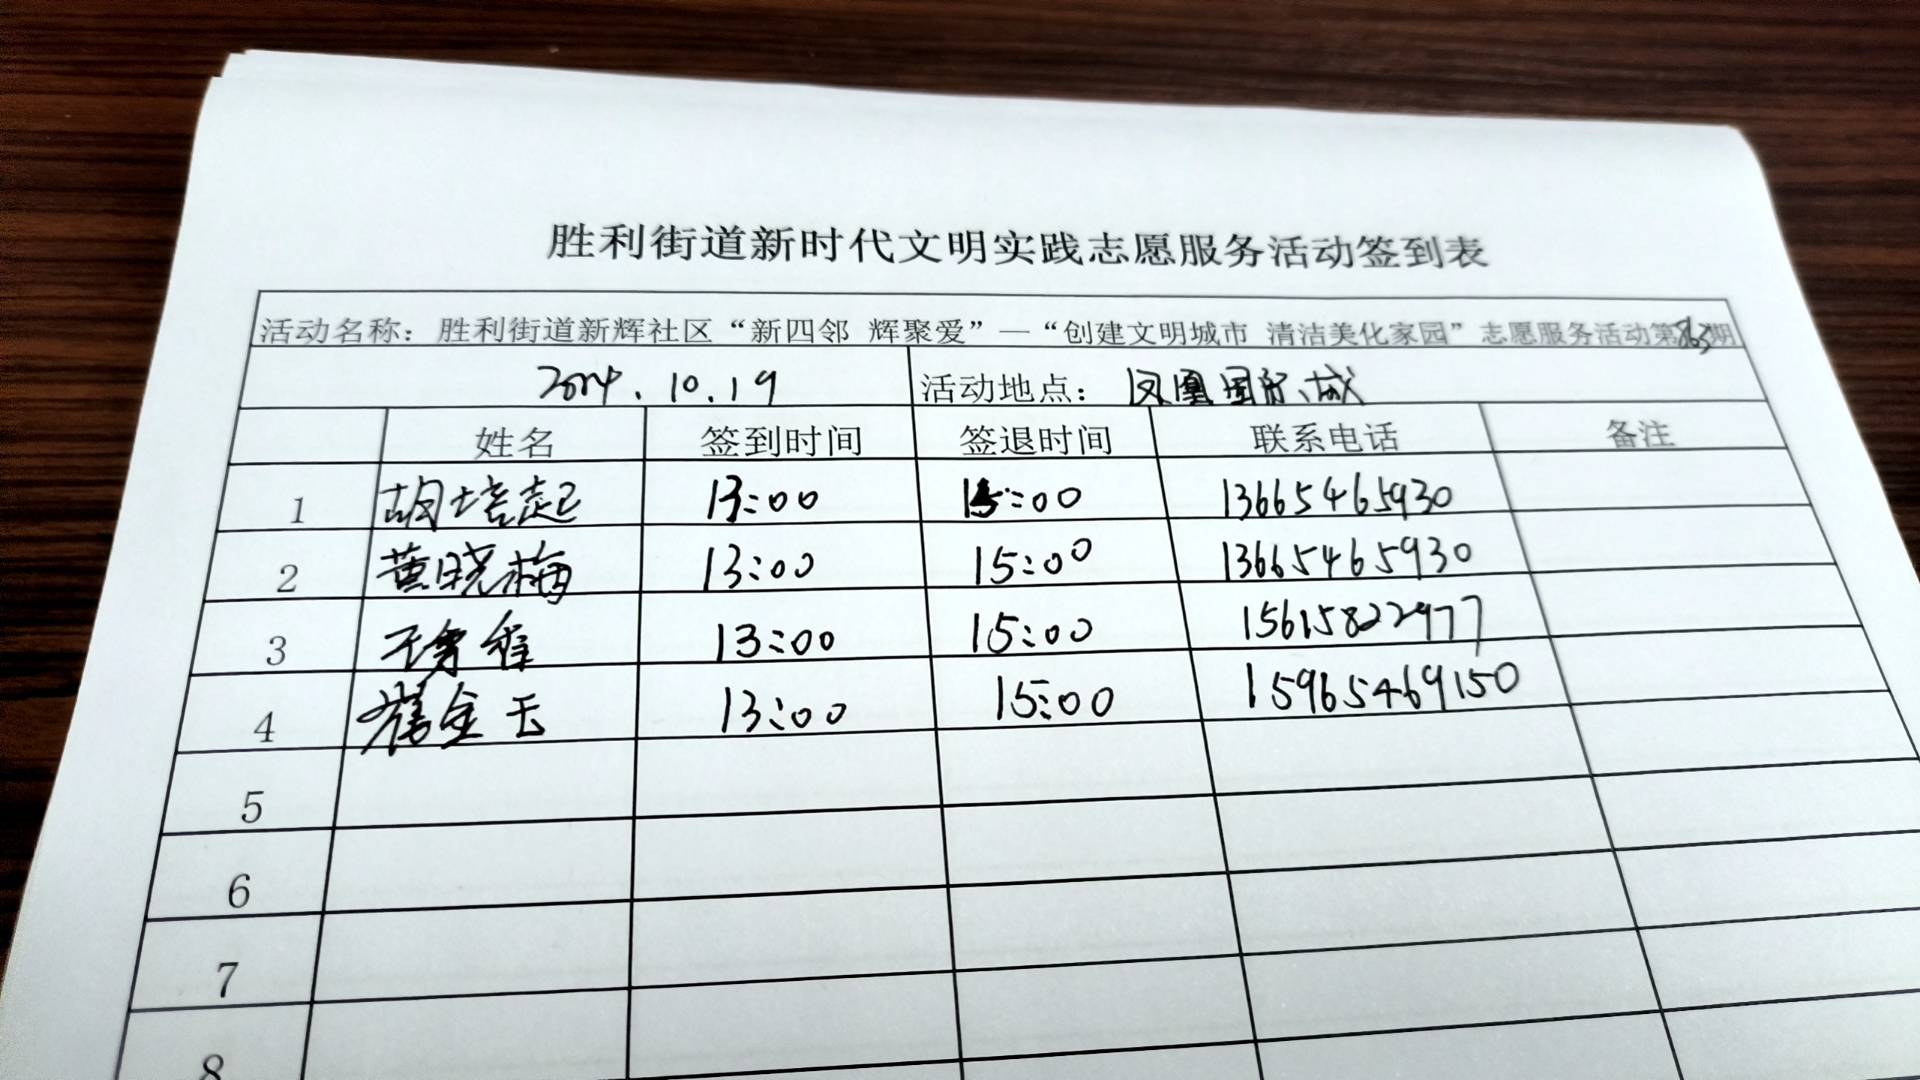 胜利街道新时代文明实践志愿服务活动签到表
活动名称：胜利街道新辉社区“新四邻 辉聚爱”—“创建文明城市 清洁美化家园”志愿服务活动第863期
2024.10.19 活动地点：凤凰国际城
姓名 签到时间 签退时间 联系电话 备注
1 胡培起 13:00 15:00 13665465930
2 黄晓梅 13:00 15:00 13665465930
3 13:00 15:00 15615822977
4 13:00 15:00 15965469150
5
6
7
8